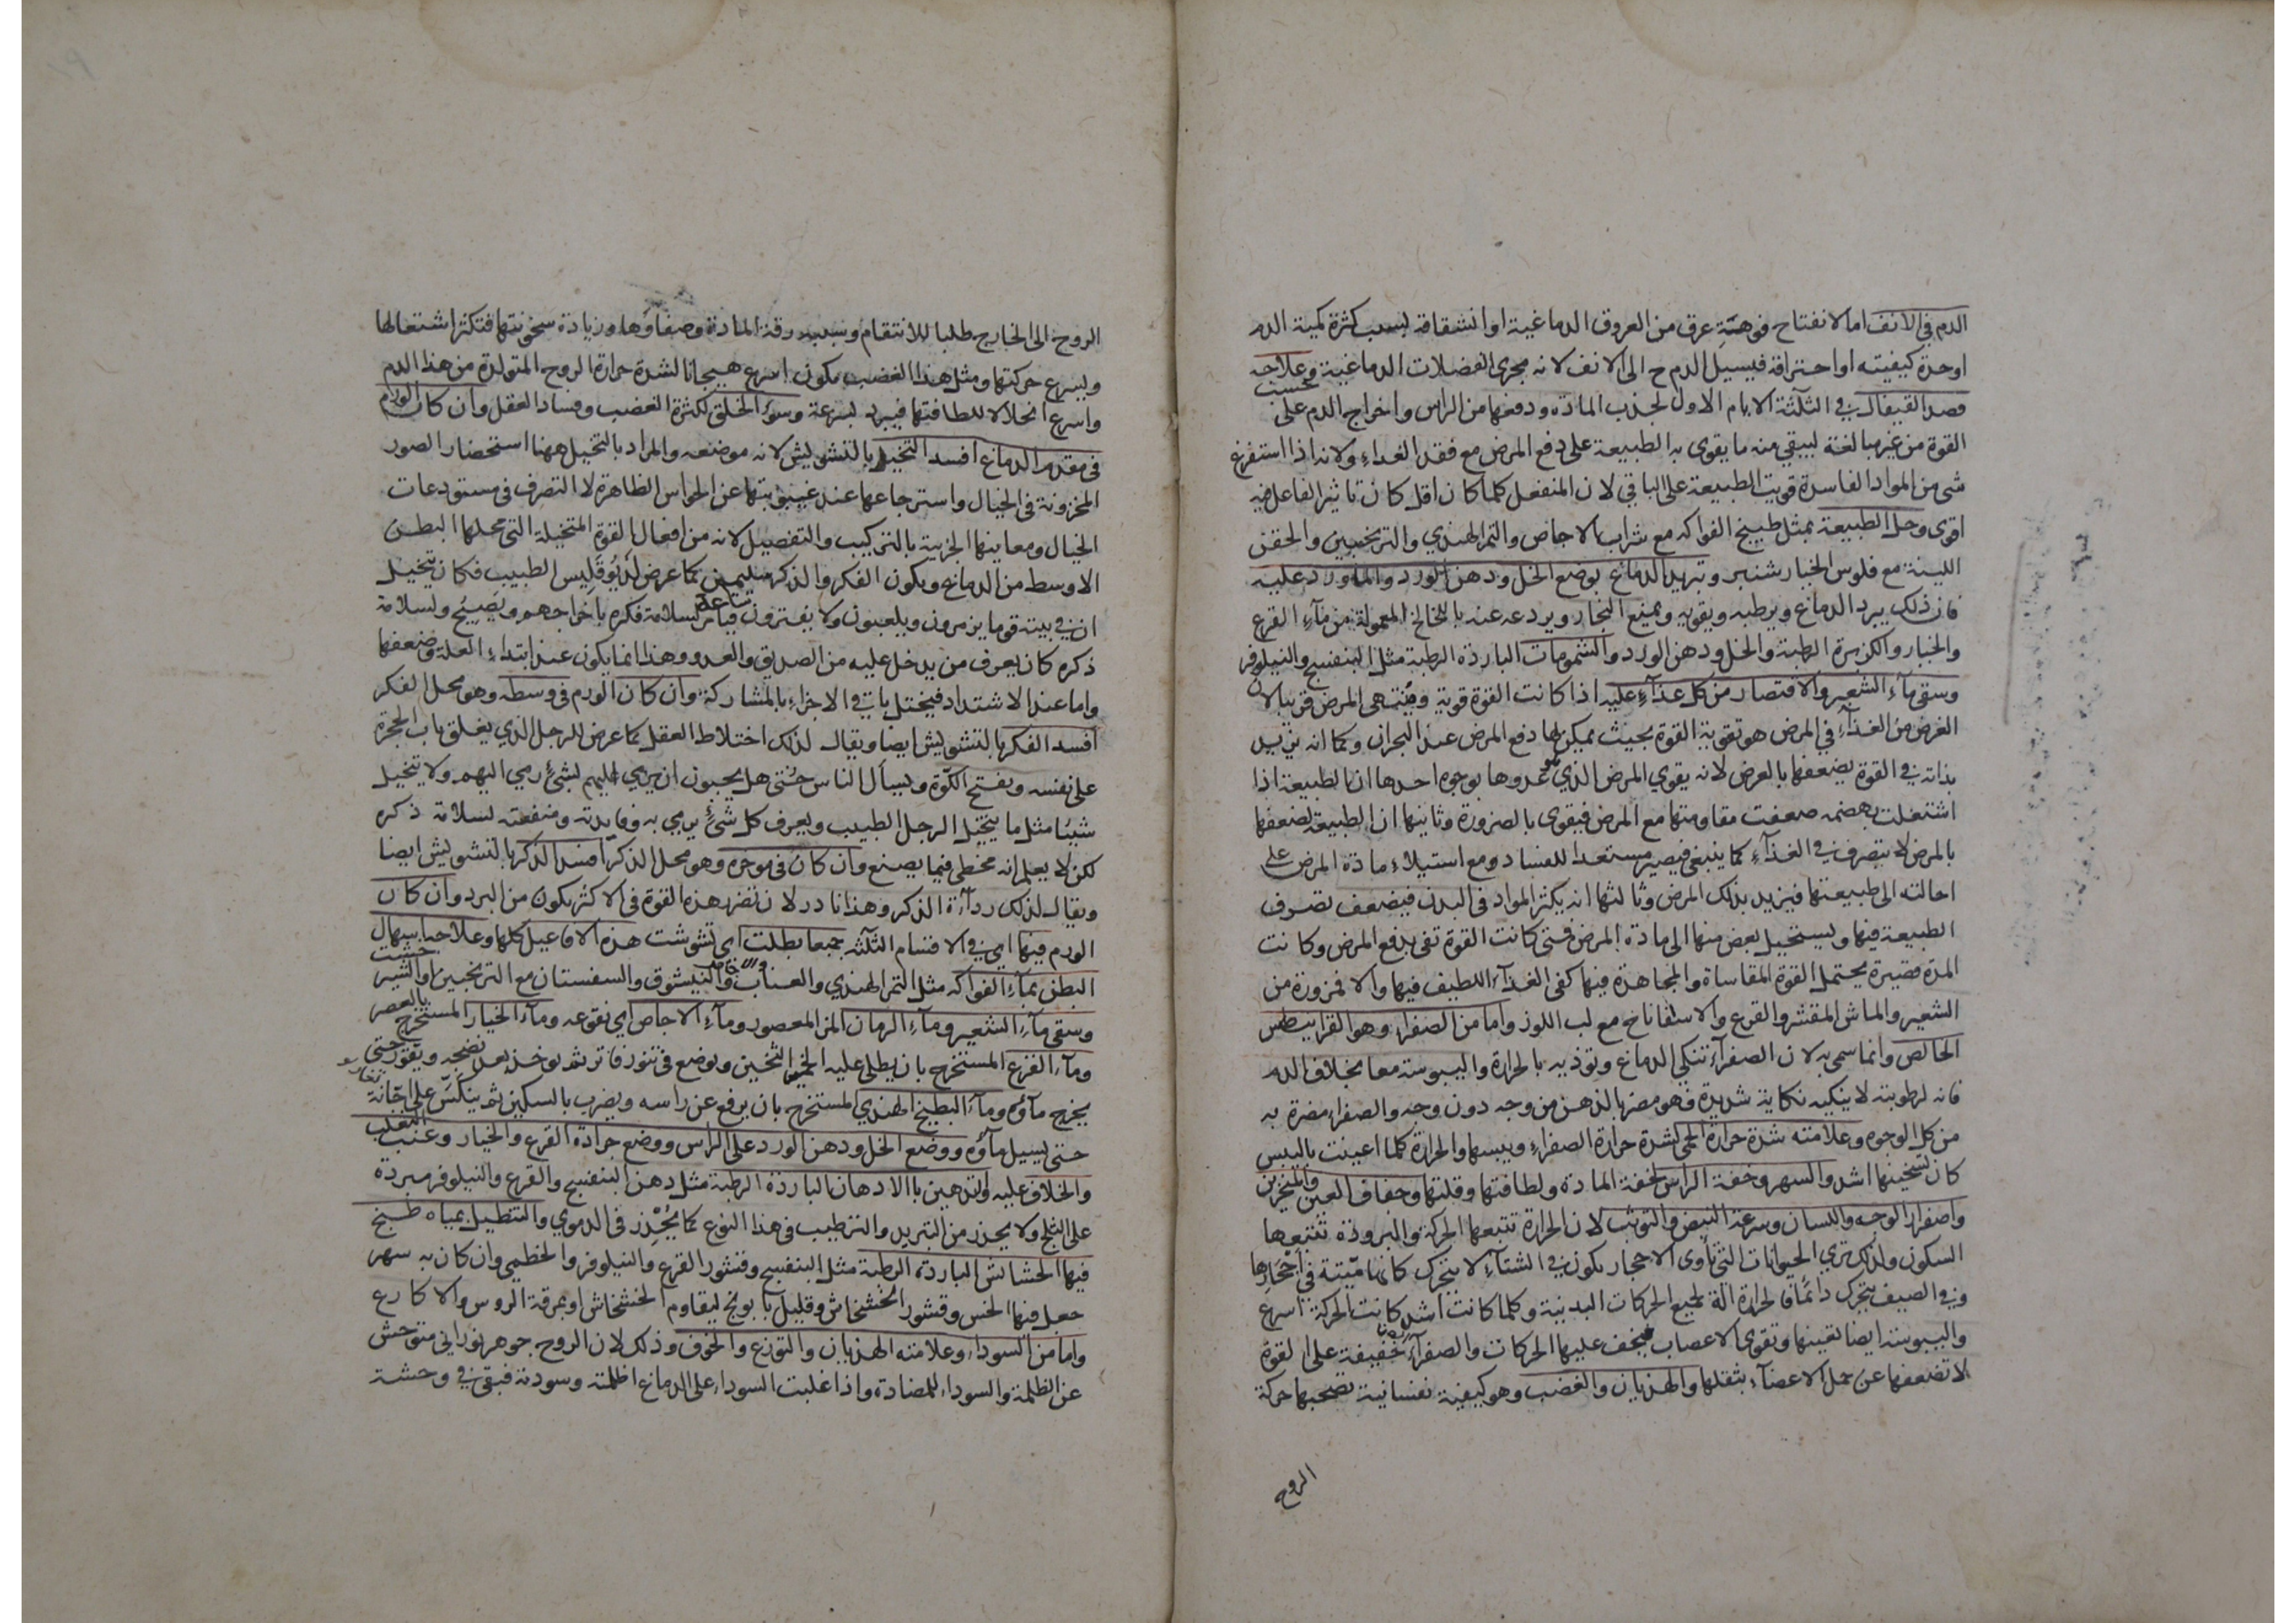 الدم في الانف اما لانفتاح فوهة عرق من العروق الدماغية او انشقاقه بسبب كثرة كمية الدم
او حدة كيفيته او احتراقه فيسيل الدم ح الى الانف لانه مجرى الفضلات الدماغية وعلاجه
فصد القيفال في الثلثة الايام الاول لجذب المادة ودفعها من الراس واخراج الدم على حسب
القوة من غير مبالغة ليبقي منه ما يقوى به الطبيعة على دفع المرض مع فقد الغداء ولانه اذا استفرغ
شى من المواد الفاسدة قويت الطبيعة على الباقي لان المنفعل كلما كان اقل كان تاثير الفاعل فيه
اقوى وحل الطبيعة بمثل طبيخ الفواكه مع شراب الاجاص والتمر الهندي والترنجبين والحقن
اللينة مع فلوس الخيار شنبر وتبريد الدماغ بوضع الخل ودهن الورد والماورد عليه
فان ذلك يبرد الدماغ ويرطبه ويقويه ويمنع البخار ويردعه عنه باللخالخ المعمولة من مآء القرع
والخيار والكزبرة الرطبة والخل ودهن الورد والشمومات الباردة الرطبة مثل البنفسج والنيلوفر
وسقي مآء الشعير والاقتصار من كل غذآء عليه اذا كانت القوة قوية ومنتهى المرض قريبا لان
الغرض من الغذآء في المرض هو تقوية القوة بحيث يمكن لها دفع المرض عند البحران وكما انه يزيد
بذاته في القوة يضعفها بالعرض لانه يقوي المرض الذي هو عدوها بوجوه احدها ان الطبيعة اذا
اشتغلت بهضمه ضعفت مقاومتها مع المرض فيقوى بالضرورة وثانيها ان الطبيعة لضعفها
بالمرض لا تتصرف في الغذآء كما ينبغي فيصير مستعدا للفساد ومع استيلاء مادة المرض على
احالته الى طبيعتها فيزيد بذلك المرض وثالثها انه يكثر المواد في البدن فيضعف تصرف
الطبيعة فيها ويستحيل بعض منها الى مادة المرض فمتى كانت القوة تفي بدفع المرض وكانت
المدة قصيرة يحتمل القوة المقاساة والمجاهدة فيها كفى الغذآء اللطيف فيها والا فمزورة من
الشعير والماش المقشر والقرع والاسفاناخ مع لب اللوز واما من الصفراء وهو القرانيطس
الخالص وانما سمي به لان الصفرآء تنكي الدماغ وتوذيه بالحرارة واليبوسة معا بخلاف الدم
فانه لرطوبته لا ينكيه نكاية شديدة فهو مضر بالذهن من وجه دون وجه والصفراء مضرة به
من كل الوجوه وعلامته شدة حرارة الحمى لشدة حرارة الصفراء ويبسها والحرارة كلما اعينت باليبس
كان تسخينها اشد والسهر وخفة الراس لخفة المادة ولطافتها وقلتها وجفاف العين والمنخرين
واصفرار الوجه واللسان وسرعة النبض والتوثب لان الحرارة تتبعها الحركة والبرودة تتبعها
السكون ولذلك ترى الحيوانات التي تأوى الاحجار يكون في الشتآء لا يتحرك كانها ميتة في احجارها
وفي الصيف يتحرك دائما فالحرارة الة لجميع الحركات البدنية وكلما كانت اشد كانت الحركة اسرع
واليبوسة ايضا تعينها وتقوى الاعصاب فيخف عليها الحركات والصفرآء خفيفة على القوة
لا تضعفها عن حمل الاعضآء بثقلها والهذيان والغضب وهو كيفية نفسانية تصحبها حركة
الروح
الروح الى الخارج طلبا للانتقام وسببه رقة المادة وصفاؤها وزيادة سخونتها فتكثر اشتعالها
ويسرع حركتها ومثل هذا الغضب يكون اسرع هيجانا لشدة حرارة الروح المتولدة من هذا الدم
واسرع انحلالا للطافتها فيبرد بسرعة وسوء الخلق لكثرة الغضب وفساد العقل وان كان الورم
في مقدم الدماغ افسد التخيل بالتشويش لانه موضعه والمراد بالتخيل ههنا استحضار الصور
المخزونة في الخيال واسترجاعها عند غيبوبتها عن الحواس الظاهرة لا التصرف في مستودعات
الخيال ومعاينها الجزئية بالتركيب والتفصيل لانه من افعال القوة المتخيلة التي محلها البطن
الاوسط من الدماغ ويكون الفكر والذكر سليمين كما عرض لديوقليس الطبيب فكان يتخيل
ان في بيته قوما يزمرون ويلعبون ولا يفترون ساعة فيامر لسلامة فكره باخراجهم ويصيح ولسلامة
ذكره كان يعرف من يدخل عليه من الصديق والعدو وهذا انما يكون عند ابتداء العلة وضعفها
واما عند الاشتداد فيختل باقي الاجزاء بالمشاركة وان كان الورم في وسطه وهو محل الفكر
افسد الفكر بالتشويش ايضا ويقال لذلك اختلاط العقل كما عرض للرجل الذي يغلق باب الحجرة
على نفسه ويفتح الكوة ويسأل الناس حتى هل يحبون ان يرمي اليهم بشئ رمي اليهم ولا يتخيل
شيئا مثل ما يتخيل الرجل الطبيب ويعرف كل شئ يرمي به وفايدته ومنفعته لسلامة ذكره
لكن لا يعلم انه مخطي فيما يصنع وان كان في موخره وهو محل الذكر افسد الذكر بالتشويش ايضا
ويقال لذلك ردآءة الذكر وهذا نادر لان تضر هذه القوة في الاكثر يكون من البرد وان كان
الورم فيها اي في الاقسام الثلثة جميعا بطلت اي تشوشت هذه الافاعيل كلها وعلاجه اسهال
البطن بمآء الفواكه مثل التمر الهندي والعناب والنيشوق والسفستان مع الترنجبين او الشير خشت
وسقي مآء الشعير ومآء الرمان المز المعصور ومآء الاجاص اي نقوعه ومآء الخيار المستخرج بالعصر
ومآء القرع المستخرج بان يطلى عليه الخمير الثخين ويوضع في تنور فاتر ثم يوخذ بعد نضجه ويقور حتى
يخرج مآؤه ومآء البطيخ الهندي المستخرج بان يرفع عن راسه ويضرب بالسكين ثم ينكس على اجانة
حتى يسيل مآؤه ووضع الخل ودهن الورد على الراس ووضع جرادة القرع والخيار وعنب الثعلب
والخلاف عليه والتدهين بالادهان الباردة الرطبة مثل دهن البنفسج والقرع والنيلوفر مبردة
على الثلج ولا يحذر من التبريد والترطيب في هذا النوع كما يحذر في الدموي والتنطيل بمياه طبخ
فيها الحشائش الباردة الرطبة مثل البنفسج وقشور القرع والنيلوفر والخطمي وان كان به سهر
جعل فيها الخس وقشور الخشخاش وقليل بابونج ليقاوم الخشخاش او بمرقة الروس والاكارع
واما من السوداء وعلامته الهذيان والتوزع والخوف وذلك لان الروح جوهر نوراني متوحش
عن الظلمة والسوداء للمضادة واذا غلبت السوداء على الدماغ اظلمته وسودته فبقي في وحشة